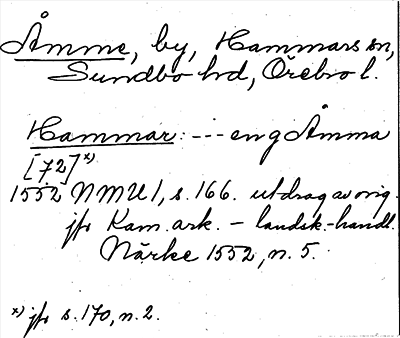 Åmme, by, Hammars sn,
Sundbo hd, Örebro l.
Hammar: --- eng Åmma
[72]x)
1552 NMU 1, s. 166. utdrag av orig.
jfr Kam. ark. - landsk.-handl.
Närke 1552, n. 5.
x) jfr s. 170, n. 2.